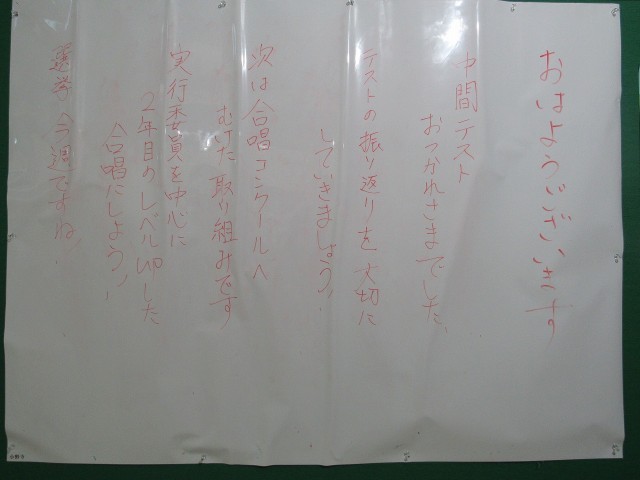 おはようございます
中間テスト
おつかれさまでした。
テストの振り返りを大切に
していきましょう。
次は合唱コンクールへ
むけた取り組みです
実行委員を中心に
2年目のレベルUPした
合唱にしよう。
選挙 今週ですね。